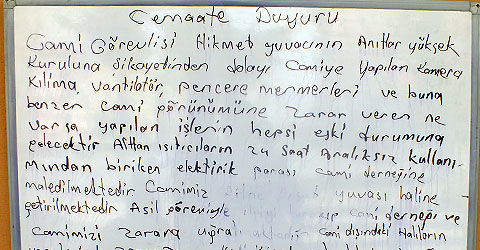 Cemaate Duyuru
Cami Görevlisi Hikmet yuvacının Anıtlar yüksek
Kuruluna şikayetinden dolayı Camiye yapılan Kamera
Kılima, vantilatör, pencere mermerleri ve buna
benzer cami görünümüne zarar veren ne
varsa yapılan işlerin hepsi eski durumuna
gelecektir Alttan ısıtıcıların 24 saat Aralıksız kullanı-
mından biriken elektirik parası cami derneğine
maledilmektedir Camimiz yuvası haline
getirilmektedir Asil göreviyle cami derneği ve
Camimizi zarara uğra cami dışındaki Halıların